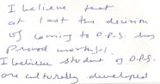 I believe that
at last the decision
of coming to D.P.S. has
proved
I believe student of D.P.S.
are culturally developed